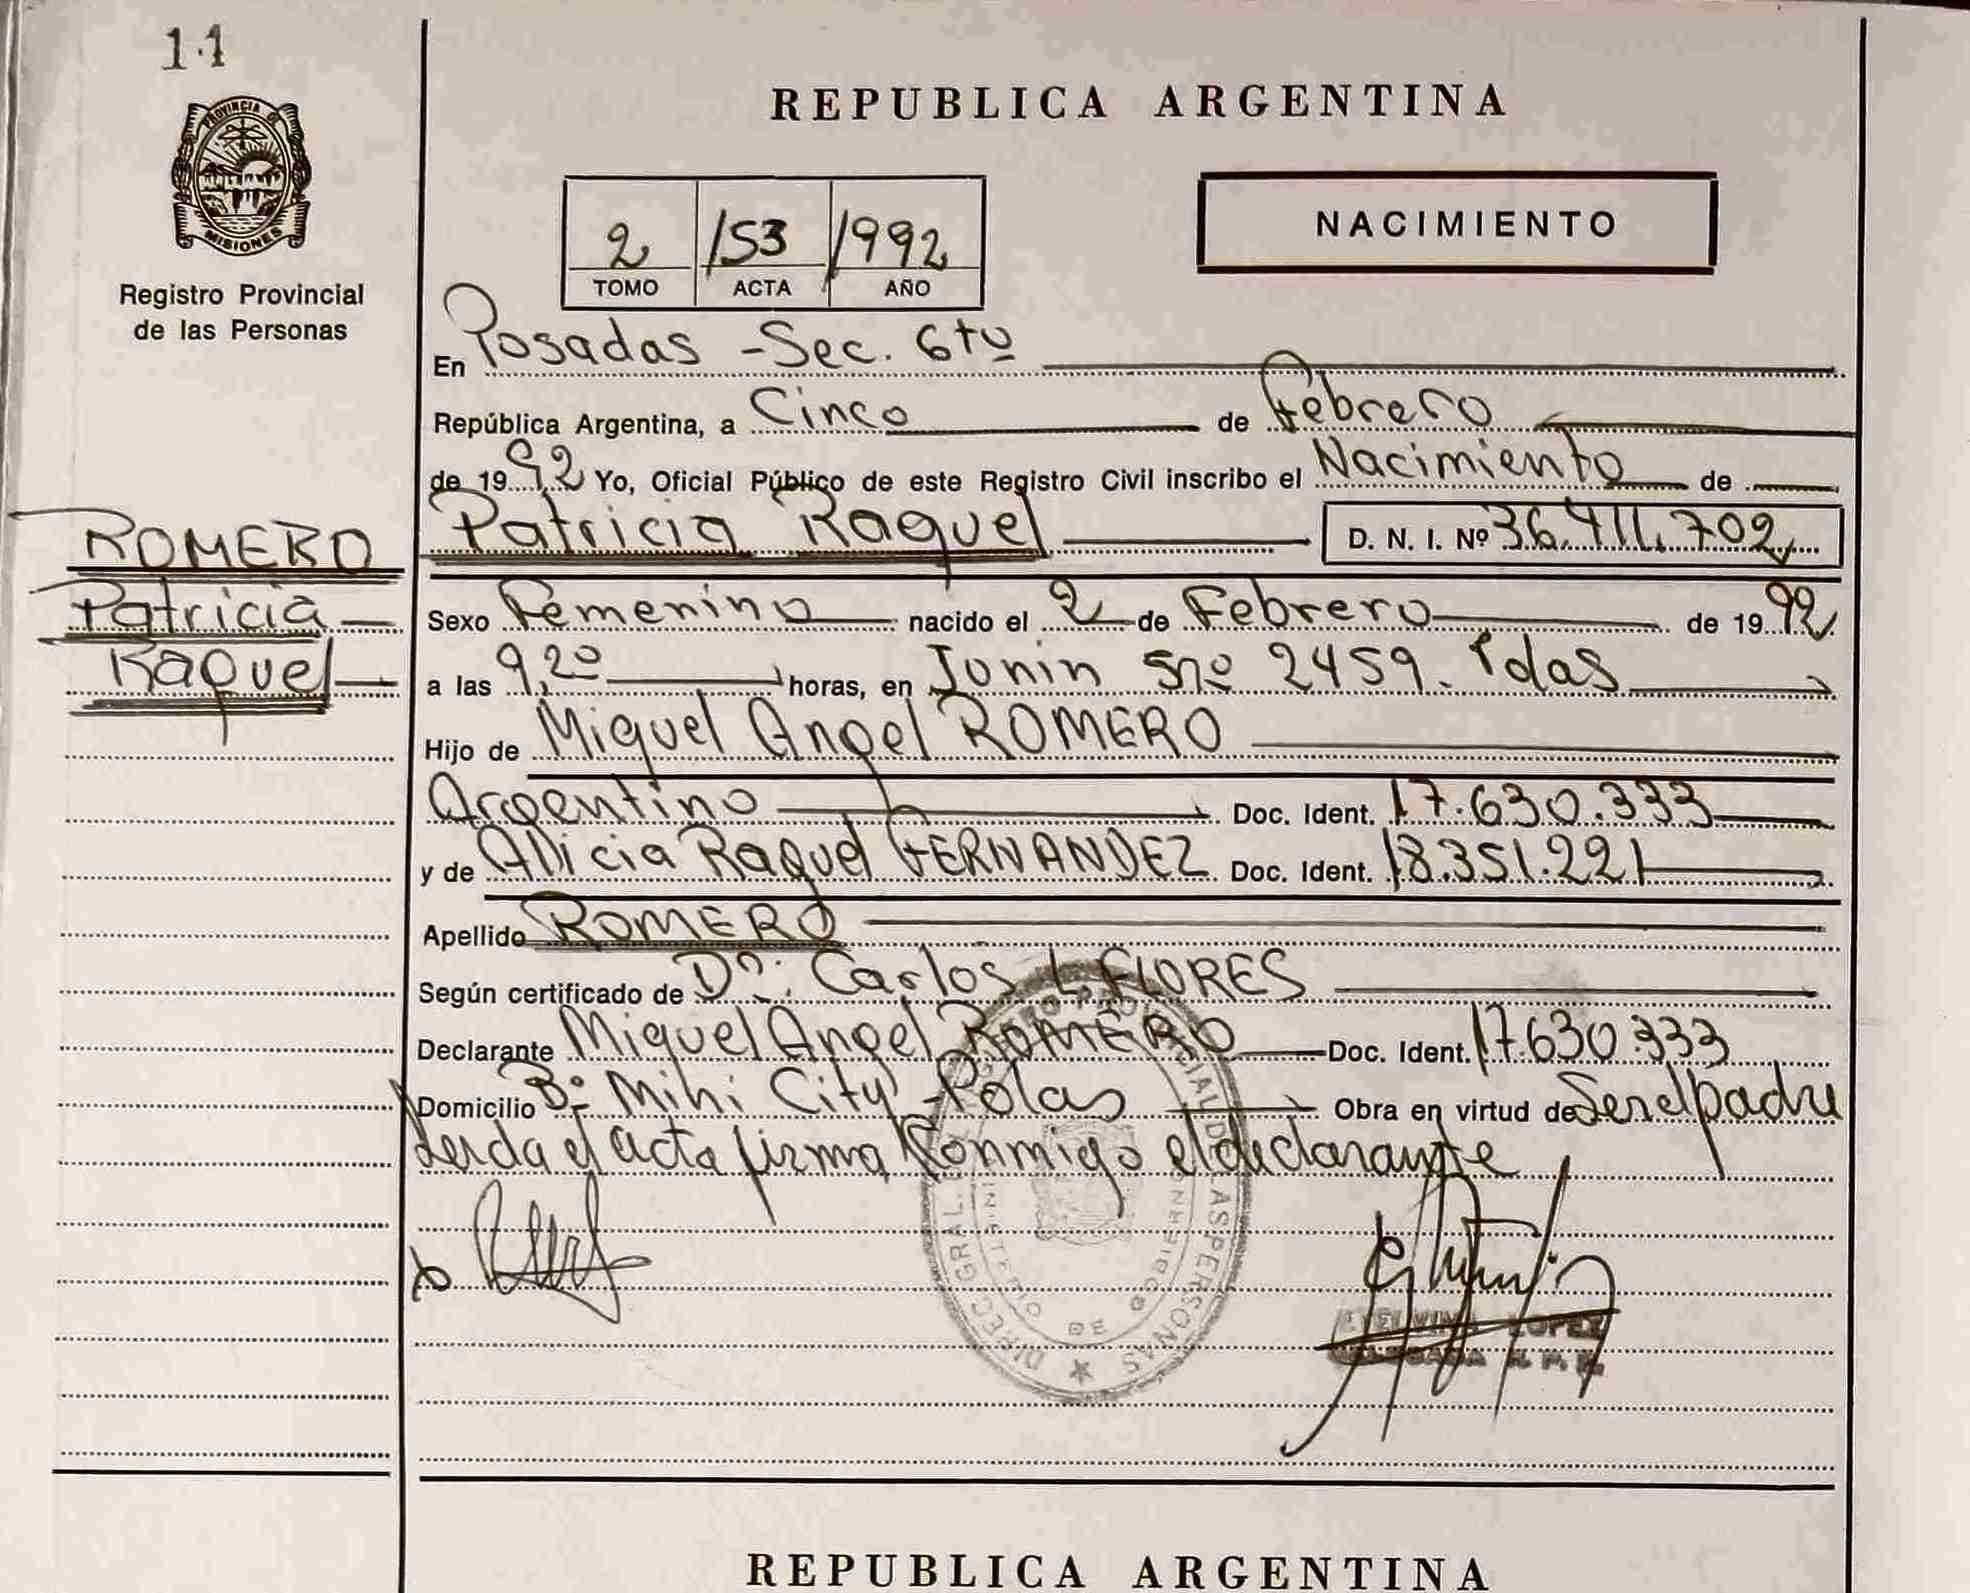 11
PROVINCIA DE
MISIONES
Registro Provincial
de las Personas
REPUBLICA ARGENTINA
2 153 1992
TOMO ACTA AÑO
NACIMIENTO
En Posadas - Sec. 6ta
República Argentina, a Cinco de Febrero
de 1992 Yo, Oficial Público de este Registro Civil inscribo el Nacimiento de
Patricia Raquel D. N. I. Nº 36.411.702
ROMERO
Patricia
Raquel
Sexo Femenino nacido el 2 de Febrero de 1992
a las 9,20 horas, en Junin Nº 2459. Pdas
Hijo de Miguel Angel ROMERO
Argentino Doc. Ident. 17.630.333
y de Alicia Raquel FERNANDEZ Doc. Ident. 18.351.221
Apellido ROMERO
Según certificado de Dº: Carlos L. FLORES
Declarante Miguel Angel ROMERO Doc. Ident. 17.630.333
Domicilio Bº Mini City - Pdas Obra en virtud de Ser el padre
Leida el acta firma conmigo el declarante
DIREC. GRAL. REGISTRO PROVINCIAL DE LAS PERSONAS
MINISTERIO DE GOBIERNO
LOPEZ
REPUBLICA ARGENTINA